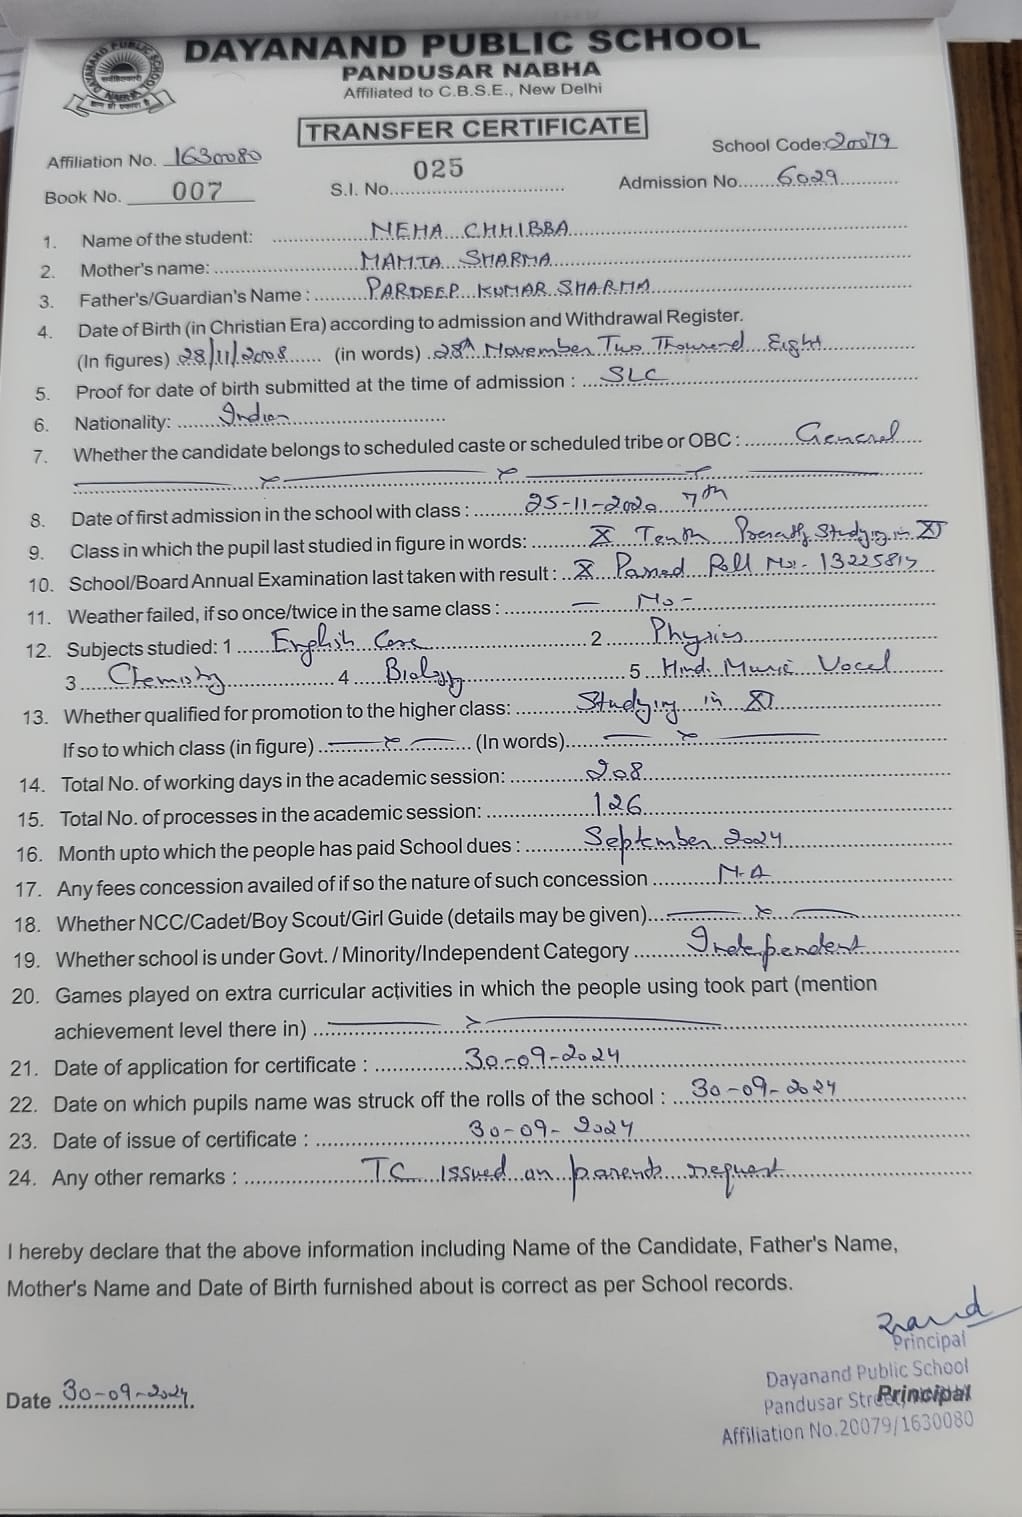 DAYANAND PUBLIC SCHOOL
PANDUSAR NABHA
Affiliated to C.B.S.E., New Delhi
TRANSFER CERTIFICATE
Affiliation No. 1630080
School Code: 20079
Book No. 007
S.I. No. 025
Admission No. 6029
1. Name of the student: NEHA CHHIBBA
2. Mother's name: MAMTA SHARMA
3. Father's/Guardian's Name : PARDEEP KUMAR SHARMA
4. Date of Birth (in Christian Era) according to admission and Withdrawal Register.
(In figures) 28/11/2008 (in words) 28th November Two Thousand Eight
5. Proof for date of birth submitted at the time of admission : SLC
6. Nationality: Indian
7. Whether the candidate belongs to scheduled caste or scheduled tribe or OBC : General
8. Date of first admission in the school with class : 25-11-2020 7th
9. Class in which the pupil last studied in figure in words: X Tenth Presently Studying in XI
10. School/Board Annual Examination last taken with result : X Passed Roll No:- 13225817
11. Weather failed, if so once/twice in the same class : — No -
12. Subjects studied: 1 English Core 2 Physics
3 Chemistry 4 Biology 5 Hind. Music Vocal
13. Whether qualified for promotion to the higher class: Studying in XI
If so to which class (in figure) (In words)
14. Total No. of working days in the academic session: 208
15. Total No. of processes in the academic session: 126
16. Month upto which the people has paid School dues : September 2024
17. Any fees concession availed of if so the nature of such concession N.A
18. Whether NCC/Cadet/Boy Scout/Girl Guide (details may be given)
19. Whether school is under Govt. / Minority/Independent Category Independent
20. Games played on extra curricular activities in which the people using took part (mention
achievement level there in)
21. Date of application for certificate : 30-09-2024
22. Date on which pupils name was struck off the rolls of the school : 30-09-2024
23. Date of issue of certificate : 30-09-2024
24. Any other remarks : TC issued on parents request
I hereby declare that the above information including Name of the Candidate, Father's Name,
Mother's Name and Date of Birth furnished about is correct as per School records.
Principal
Dayanand Public School
Pandusar Street,
Principal
Affiliation No.20079/1630080
Date 30-09-2024